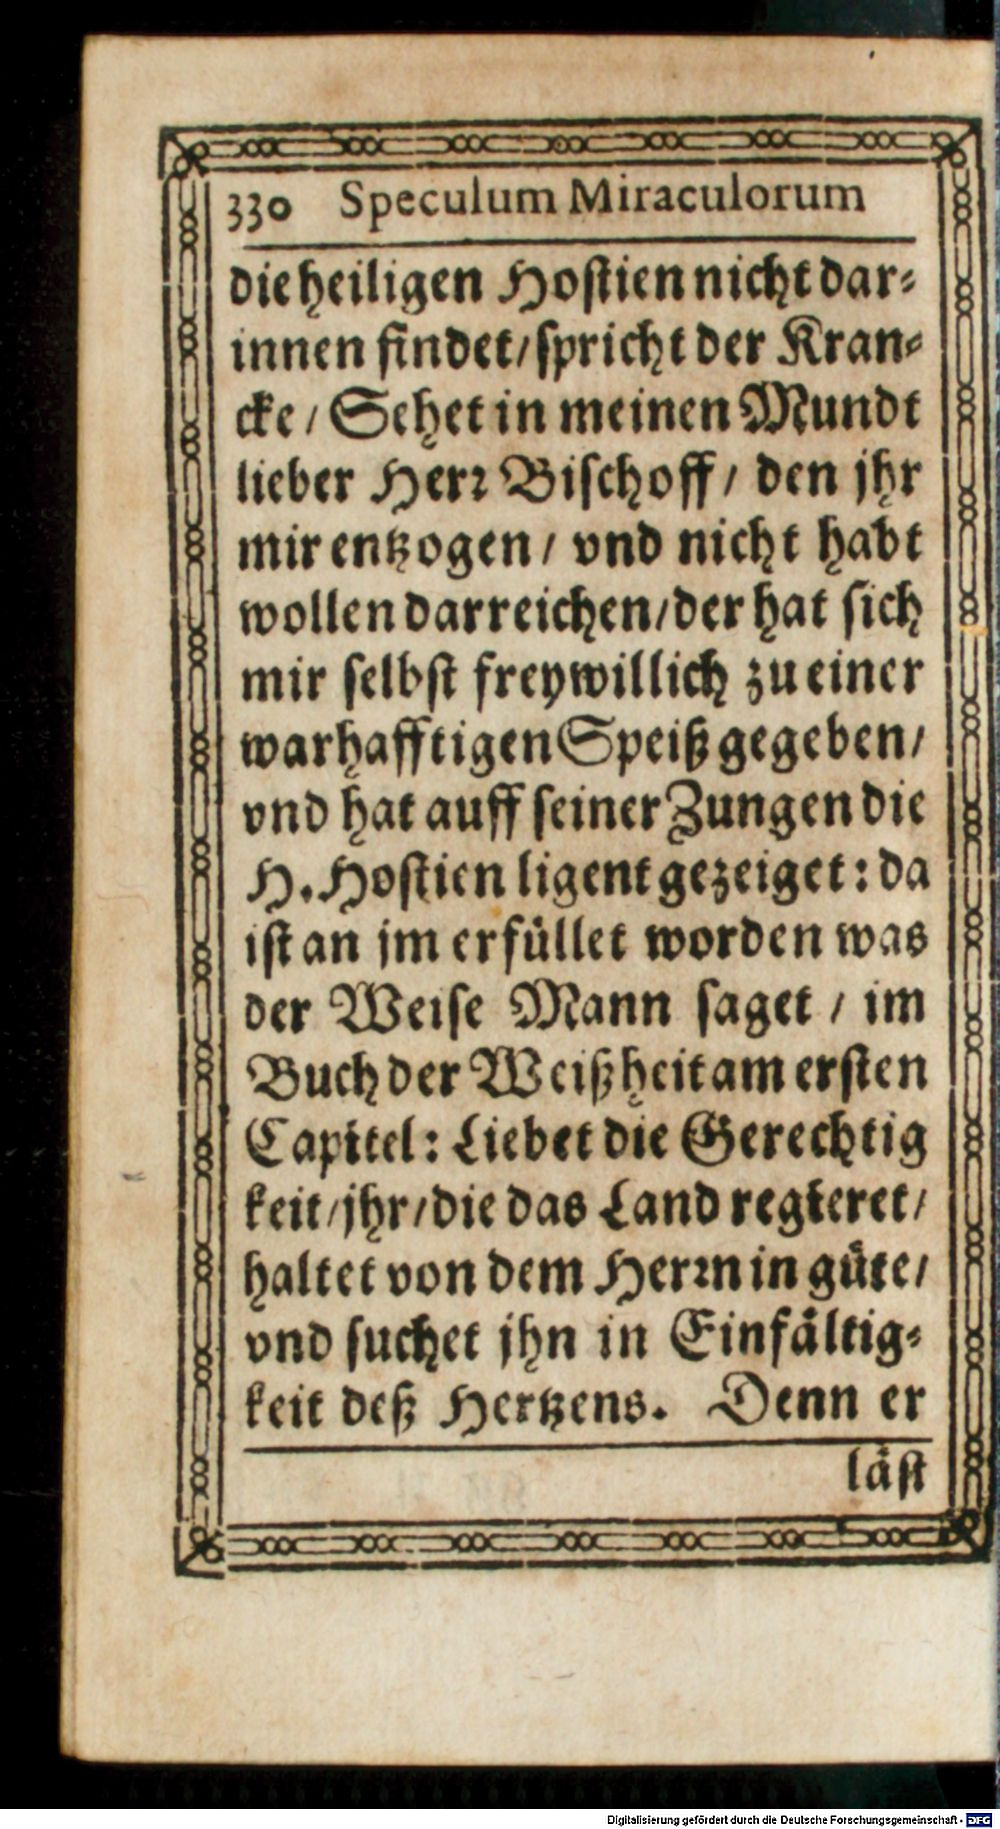 330 Speculum Miraculorum
die heiligen Hostien nicht dar⸗
innen findet/ spricht der Kran⸗
cke / Sehet in meinen Mundt
lieber Herꝛ Bischoff / den jhr
mir entzogen / vnd nicht habt
wollen darreichen/ der hat sich
mir selbst freywillich zu einer
warhafftigen Speiß gegeben/
vnd hat auff seiner Zungen die
H. Hostien ligent gezeiget: da
ist an jm erfüllet worden was
der Weise Mann saget / im
Buch der Weißheit am ersten
Capitel: Liebet die Gerechtig
keit/ jhr/ die das Land regieret/
haltet von dem Herꝛn in güte/
vnd suchet jhn in Einfältig⸗
keit deß Hertzens. Denn er
läst
Digitalisierung gefördert durch die Deutsche Forschungsgemeinschaft - DFG